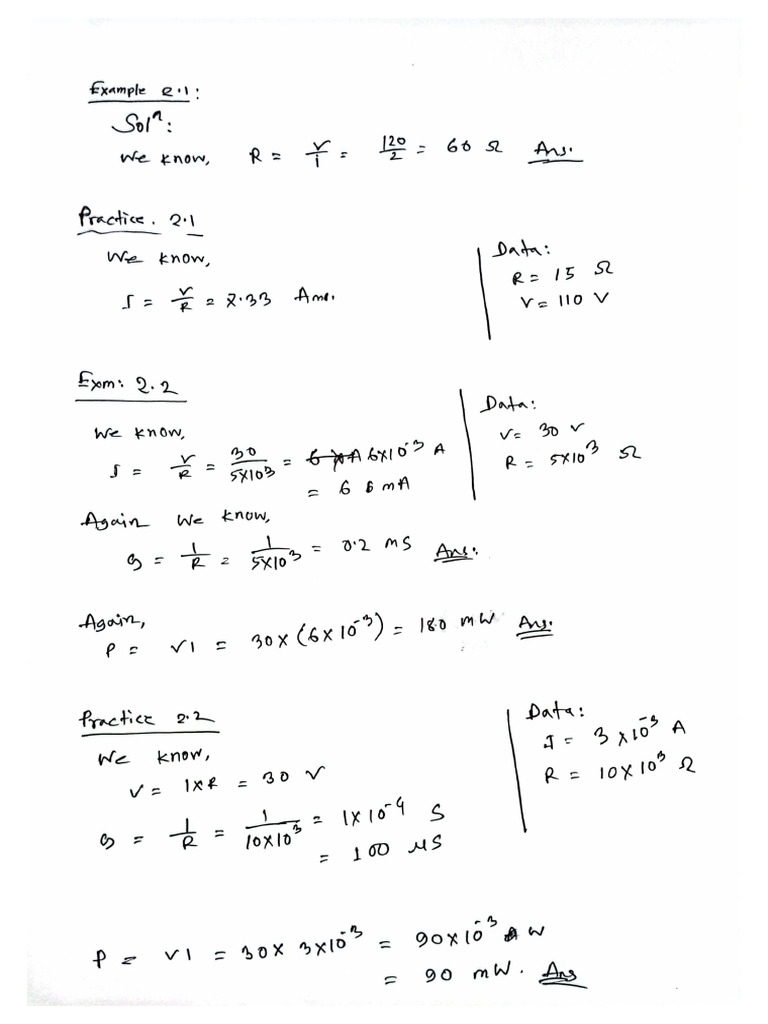 Example 2.1:
Solⁿ:
We know, R = V/I = 120/2 = 60 Ω Ans.
Practice. 2.1
We know,
I = V/R = 7.33 Ans.
Data:
R = 15 Ω
V = 110 V
Exm: 2.2
We know,
I = V/R = 30/5×10³ = 6×10⁻³ A
= 6 6 mA
Data:
V = 30 V
R = 5×10³ Ω
Again We know,
g = 1/R = 1/5×10³ = 0.2 mS Ans:
Again,
P = VI = 30×(6×10⁻³) = 180 mW Ans.
Practice 2.2
We know,
V = I×R = 30 V
g = 1/R = 1/10×10³ = 1×10⁻⁴ S
= 100 μS
Data:
I = 3×10⁻³ A
R = 10×10³ Ω
P = VI = 30× 3×10⁻³ = 90×10⁻³ W
= 90 mW. Ans